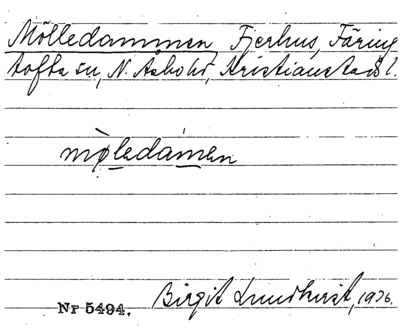 Mölledammen, Fjerhus, Färing
tofta sn, N. Åsbo hd, Kristianstads l.
mø̀ledámen
Birgit Lundkvist, 1926.
Nr 5494.